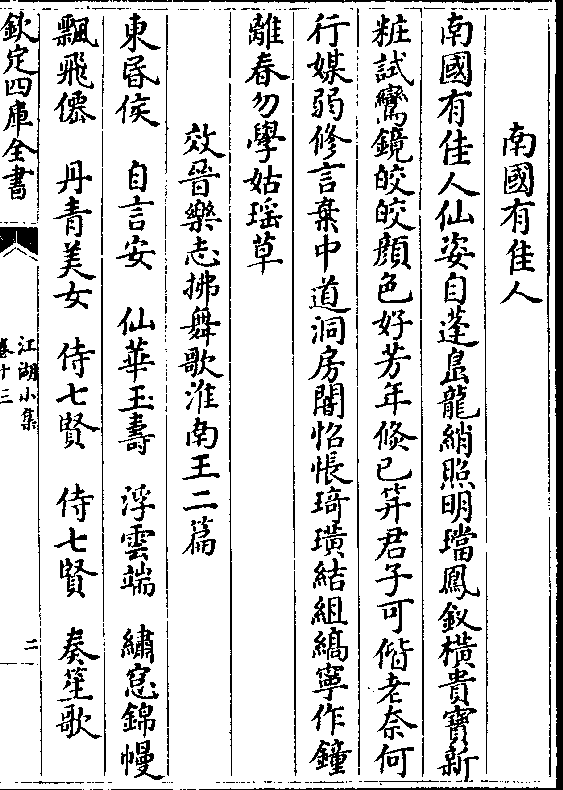 南國有佳人
南國有佳人仙姿自蓬島龍綃照明璫鳳釵横貴寳新
粧試鸞鏡皎皎顔色好芳年倏已笄君子可偕老奈何
行媒弱修言棄中道洞房閴怊悵琦璜結組縞寧作鐘
離春勿學姑瑶草
效晉樂志拂舞歌淮南王二篇
東昏侯 自言安 仙華玉壽 浮雲端 繡窓錦幔
飄飛僊 丹青美女 侍七賢 侍七賢 奏笙歌
欽定四庫全書
江湖小集
卷十三
二